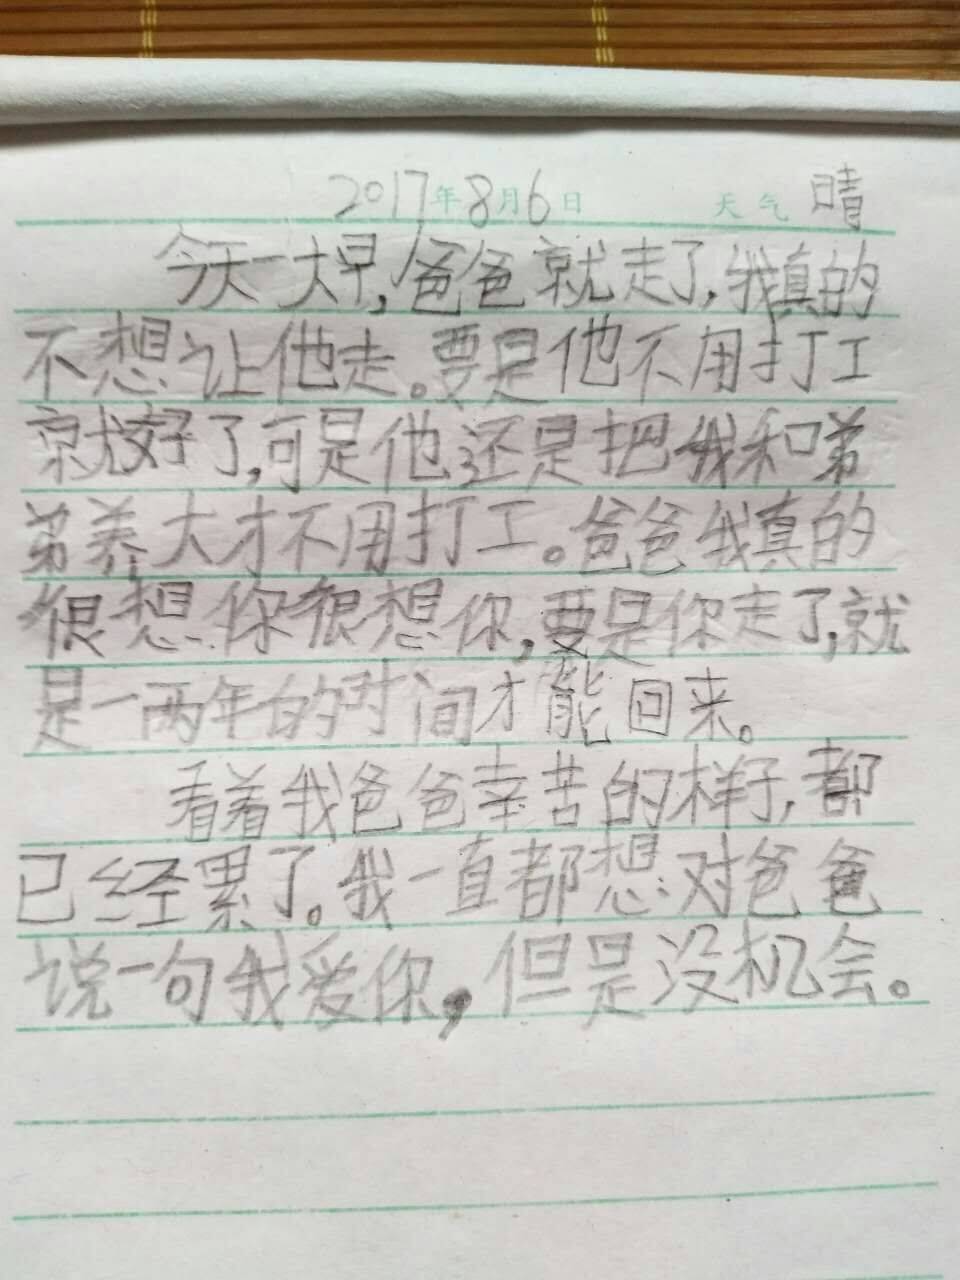 2017年8月6日 天气 晴
今天一大早,爸爸就走了,我真的
不想让他走。要是他不用打工
就好了,可是他还是把我和弟
弟养大才不用打工。爸爸我真的
很想你很想你,要是你走了,就
是一两年的时间才能回来。
看着我爸爸幸苦的样子,都
已经累了。我一直都想对爸爸
说一句我爱你,但是没机会。